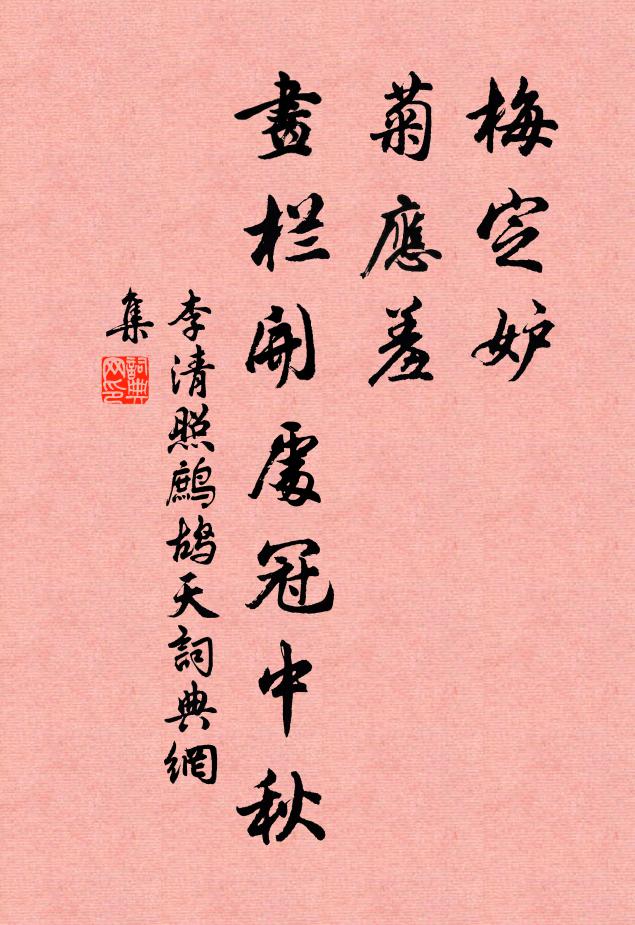 梅定妒
菊應羞
畫栏開處冠中秋
李清照鷓鴣天詞典網
集
詞典网印